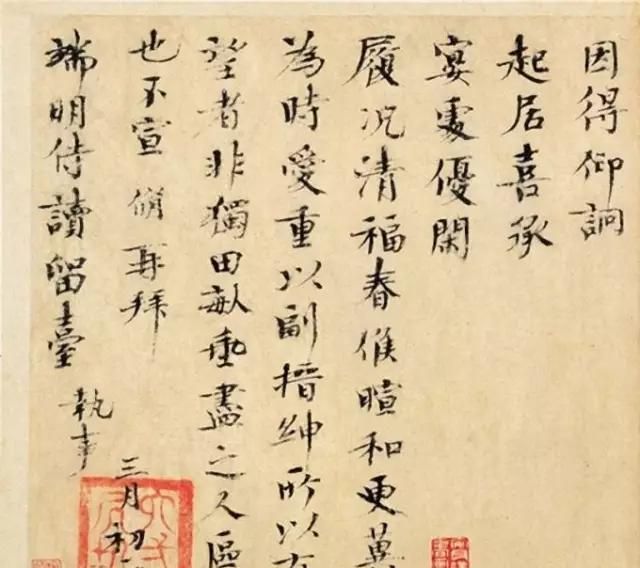 因得仰詗
起居喜承
宴處優閑
履況清福春候暄和更冀
為時愛重以副搢紳所以有
望者非獨田畝垂盡之人區
也不宣 脩再拜
端明侍讀留臺 執事
三月初